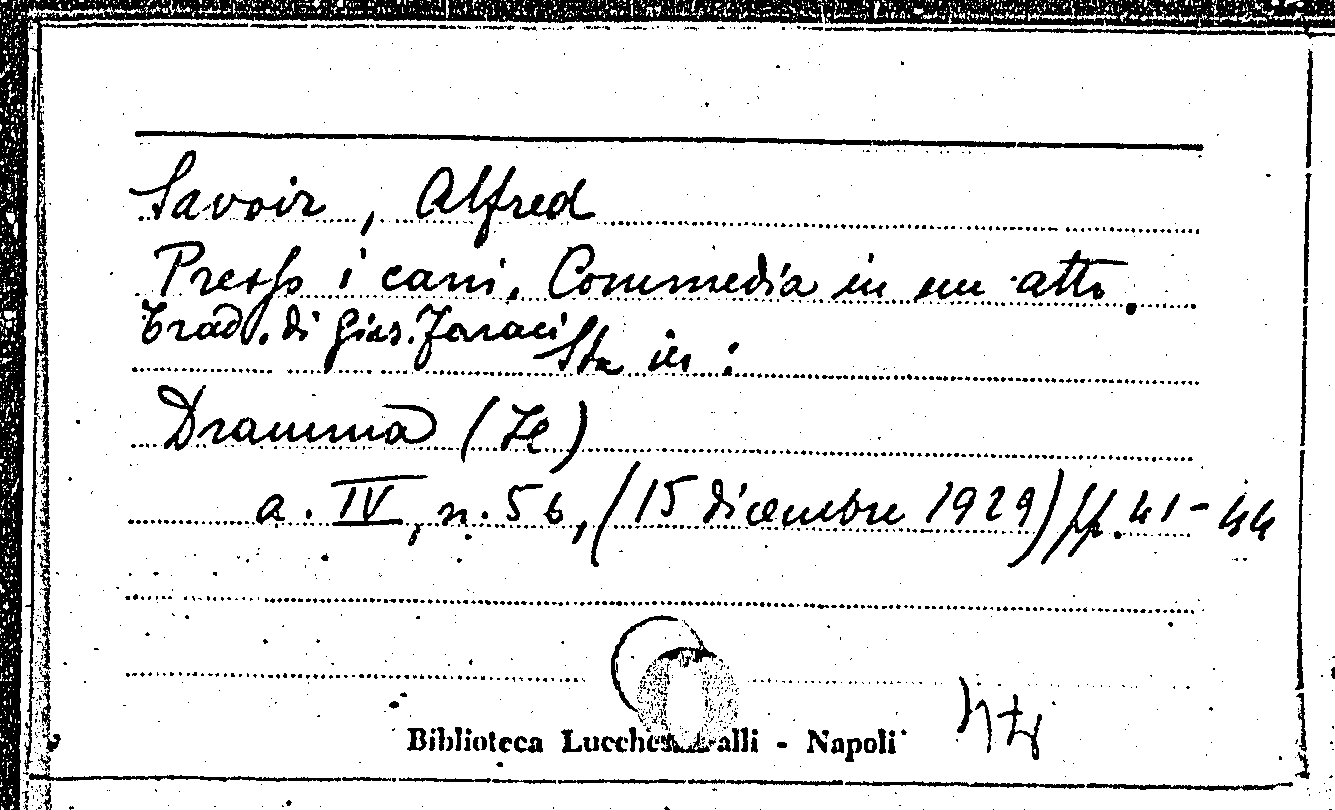 Savoir, Alfred
Presso i cani. Commedia in un atto.
Trad. di Gius. Faraci Sta in:
Dramma (Il)
a. IV, n. 56, (15 dicembre 1929) pp. 41-44
Biblioteca Lucchesi alli - Napoli